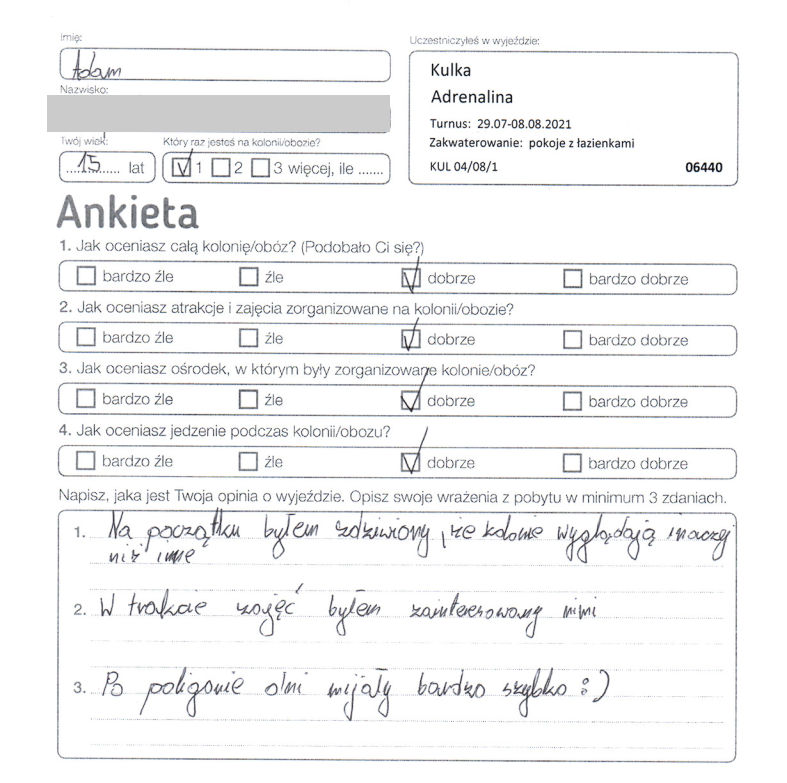 Imię:
Adam
Nazwisko:
Twój wiek:
Który raz jesteś na kolonii/obozie?
....15...... lat
1 2 3 więcej, ile .......
Uczestniczyłeś w wyjeździe:
Kulka
Adrenalina
Turnus: 29.07-08.08.2021
Zakwaterowanie: pokoje z łazienkami
KUL 04/08/1 06440
Ankieta
1. Jak oceniasz całą kolonię/obóz? (Podobało Ci się?)
bardzo źle źle dobrze bardzo dobrze
2. Jak oceniasz atrakcje i zajęcia zorganizowane na kolonii/obozie?
bardzo źle źle dobrze bardzo dobrze
3. Jak oceniasz ośrodek, w którym były zorganizowane kolonie/obóz?
bardzo źle źle dobrze bardzo dobrze
4. Jak oceniasz jedzenie podczas kolonii/obozu?
bardzo źle źle dobrze bardzo dobrze
Napisz, jaka jest Twoja opinia o wyjeździe. Opisz swoje wrażenia z pobytu w minimum 3 zdaniach.
1. Na początku byłem zdziwiony, że kolonie wyglądają inaczej
niż inne
2. W trakcie zajęć byłem zainteresowany nimi
3. Po poligonie dni mijały bardzo szybko :)